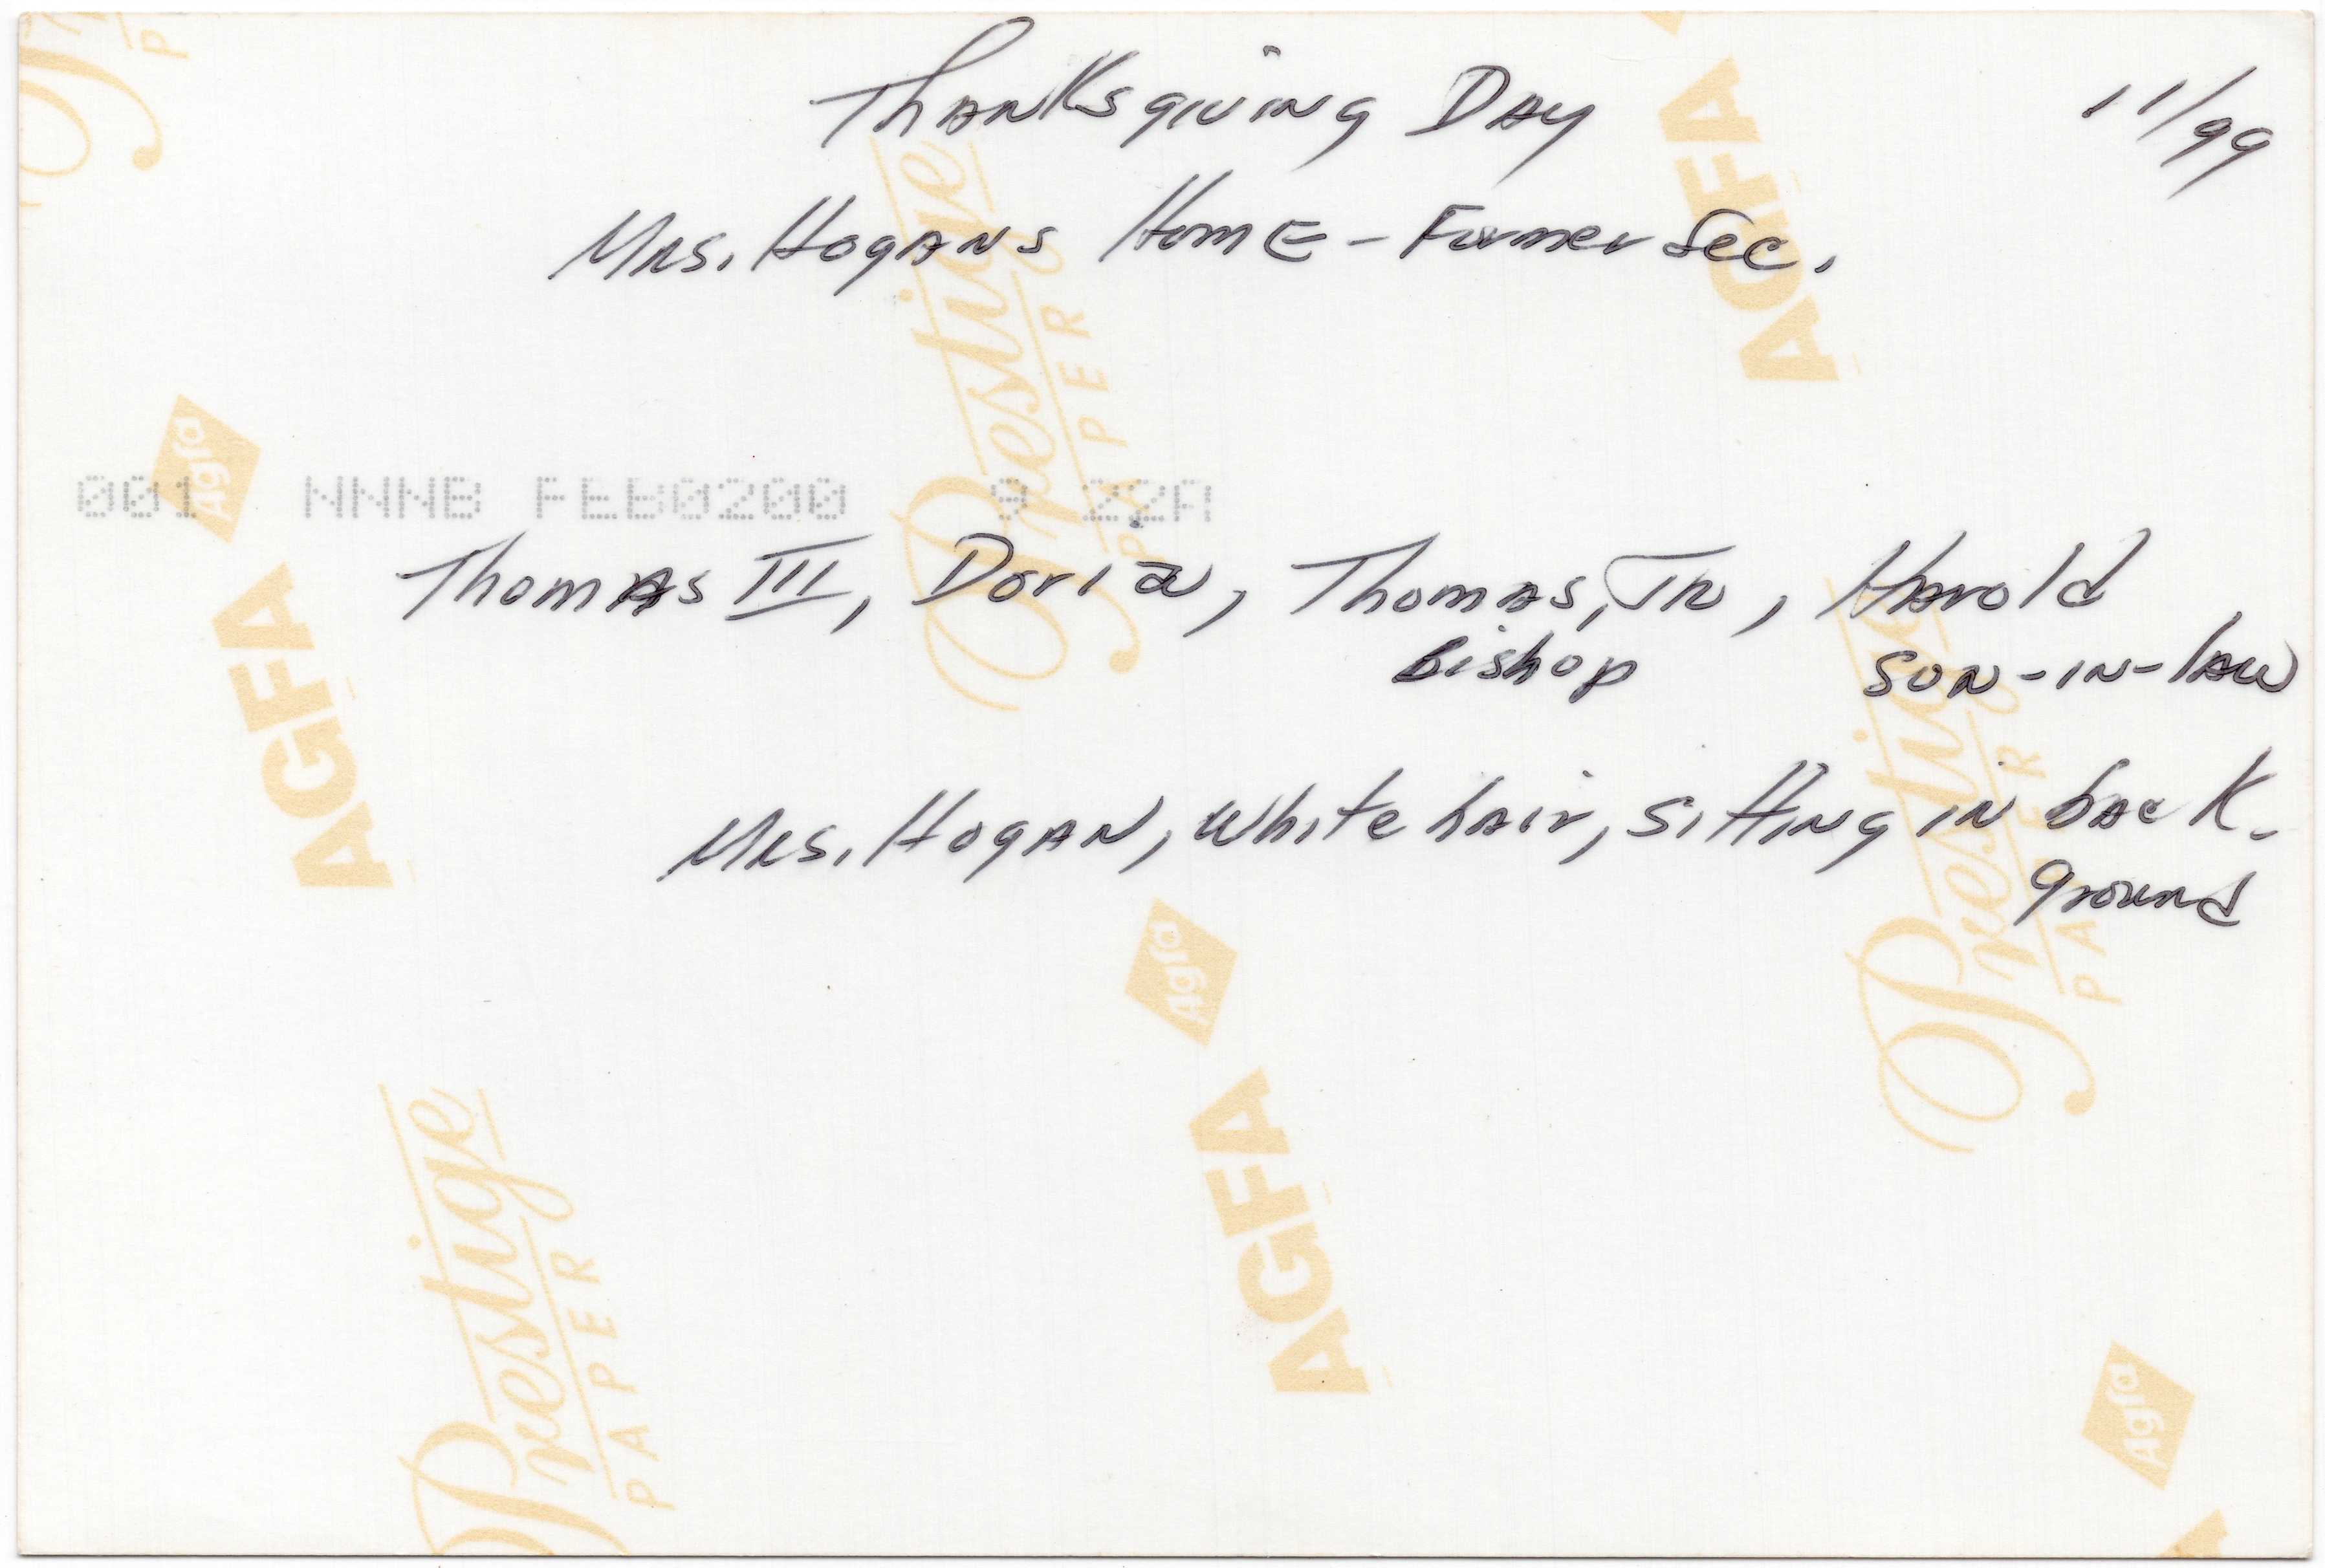 Thanksgiving Day 11/99
Mrs. Hogans Home - Former Sec.
001 NNNB FEB0200 9 22A
Thomas III, Doria, Thomas, Jr, Harold
Bishop son-in-law
Mrs. Hogan, white hair, sitting in back-
ground
Prestige
PAPER
AGFA
Agfa
AGFA
Prestige
PAPER
Agfa
AGFA
Prestige
PAPER
Agfa